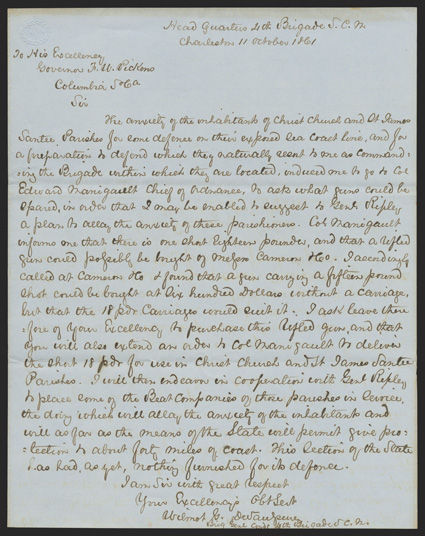 Head Quarters 4th Brigade S.C.M.
Charleston 11 October 1861
To His Excellency
Governor F. W. Pickens
Columbia So Ca
Sir
The anxiety of the inhabitants of Christ Church and St James
Santee Parishes for some defence on their exposed sea coast line, and for
a preparation to defend which they naturally resent to me as command-
-ing the Brigade within which they are located, induced me to go to Col
Edward Manigault Chief of ordnance, to ask what guns could be
spared, in order that I may be enabled to suggest to Genl Ripley
a plan to allay the anxiety of these parishioners. Col Manigault
informs me that there is one short Eighteen pounder, and that a rifled
gun could possibly be bought of Messrs Cameron & Co. I accordingly
called at Cameron & Co & found that a gun carrying a fifteen pound
shot could be bought at Six hundred Dollars without a carriage,
but that the 18 pdr Carriage would suit it. I ask leave there
-fore of Your Excellency to purchase this rifled gun, and that
you will also extend an order to Col Manigault to deliver
the short 18 pdr for use in Christ Church and St James Santee
Parishes. I will then endeavor in cooperation with Genl Ripley
to place some of the Beat Companies of those parishes in service,
the doing which will allay the anxiety of the inhabitants and
will as far as the means of the State will permit give pro-
-tection to about forty miles of coast. This section of the State
has had, as yet, nothing furnished for its defence.
I am Sir with great respect
Your Excellency's Obt Sert
Wilmot G. DeSaussure
Brig Genl Comdg 4th Brigade S.C.M.